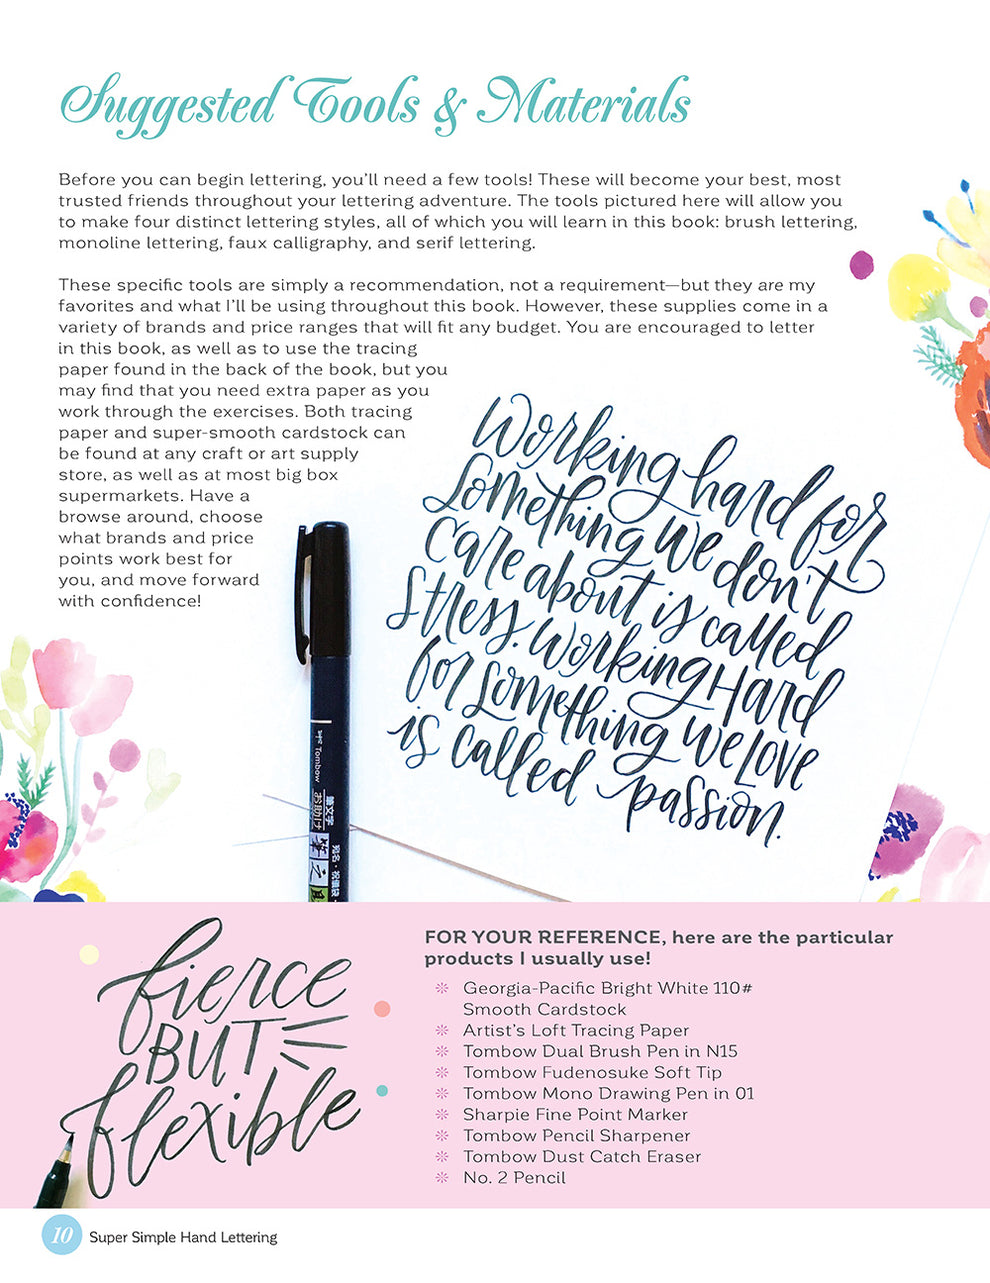 Suggested Tools & Materials
Before you can begin lettering, you’ll need a few tools! These will become your best, most
trusted friends throughout your lettering adventure. The tools pictured here will allow you
to make four distinct lettering styles, all of which you will learn in this book: brush lettering,
monoline lettering, faux calligraphy, and serif lettering.
These specific tools are simply a recommendation, not a requirement—but they are my
favorites and what I’ll be using throughout this book. However, these supplies come in a
variety of brands and price ranges that will fit any budget. You are encouraged to letter
in this book, as well as to use the tracing
paper found in the back of the book, but you
may find that you need extra paper as you
work through the exercises. Both tracing
paper and super-smooth cardstock can
be found at any craft or art supply
store, as well as at most big box
supermarkets. Have a
browse around, choose
what brands and price
points work best for
you, and move forward
with confidence!
Working hard for
Something we don't
Care about is called
Stress. Working Hard
for Something we Love
is called passion.
Tombow
筆文字
お助け
筆之
fierce
BUT
flexible
FOR YOUR REFERENCE, here are the particular
products I usually use!
Georgia-Pacific Bright White 110#
Smooth Cardstock
Artist’s Loft Tracing Paper
Tombow Dual Brush Pen in N15
Tombow Fudenosuke Soft Tip
Tombow Mono Drawing Pen in 01
Sharpie Fine Point Marker
Tombow Pencil Sharpener
Tombow Dust Catch Eraser
No. 2 Pencil
10 Super Simple Hand Lettering